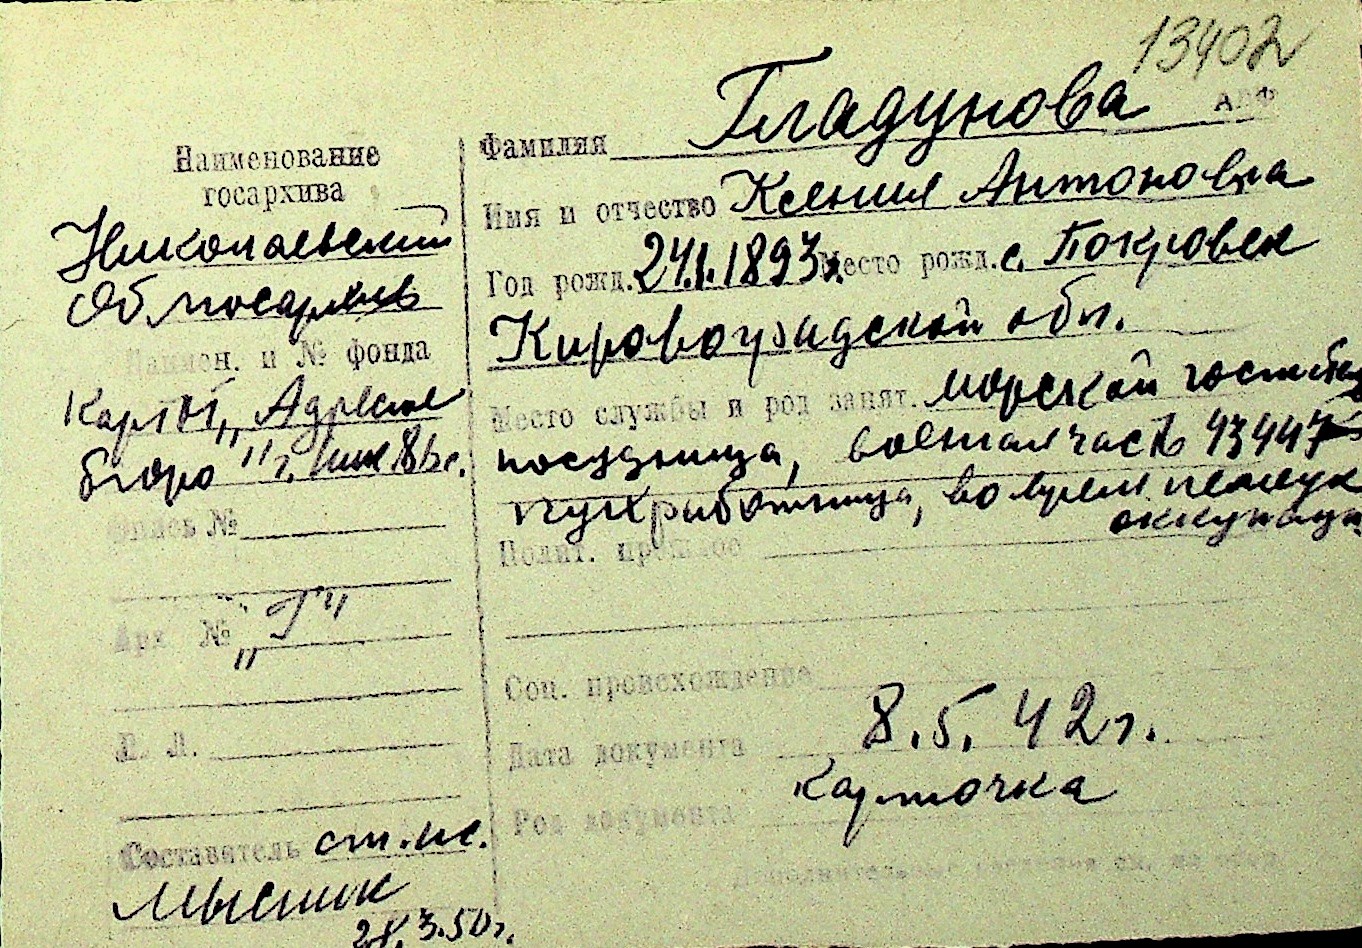 13402
АВФ
Фамилия Гладунова
Имя и отчество Ксения Антоновна
Год рожд. 24.1.1893г. Место рожд. с. Покровск
Кировоградской обл.
Место службы и род занят. морской госпиталь
посудница, военная часть 43447
кухработница, во время немецк
оккупации
Полит. прошлое
Соц. происхождение
Дата документа 8.5.42 г.
Род документа карточка
Дополнительные см. на обор.
Наименование
госархива
Николаевский
Облгосархив
Наимен. и № фонда
Карт. „Адресное
бюро" г. Ник
Опись №
Арх. № „Г"
Л. Л.
Составитель ст. н.с.
Мысник
28.3.50г.